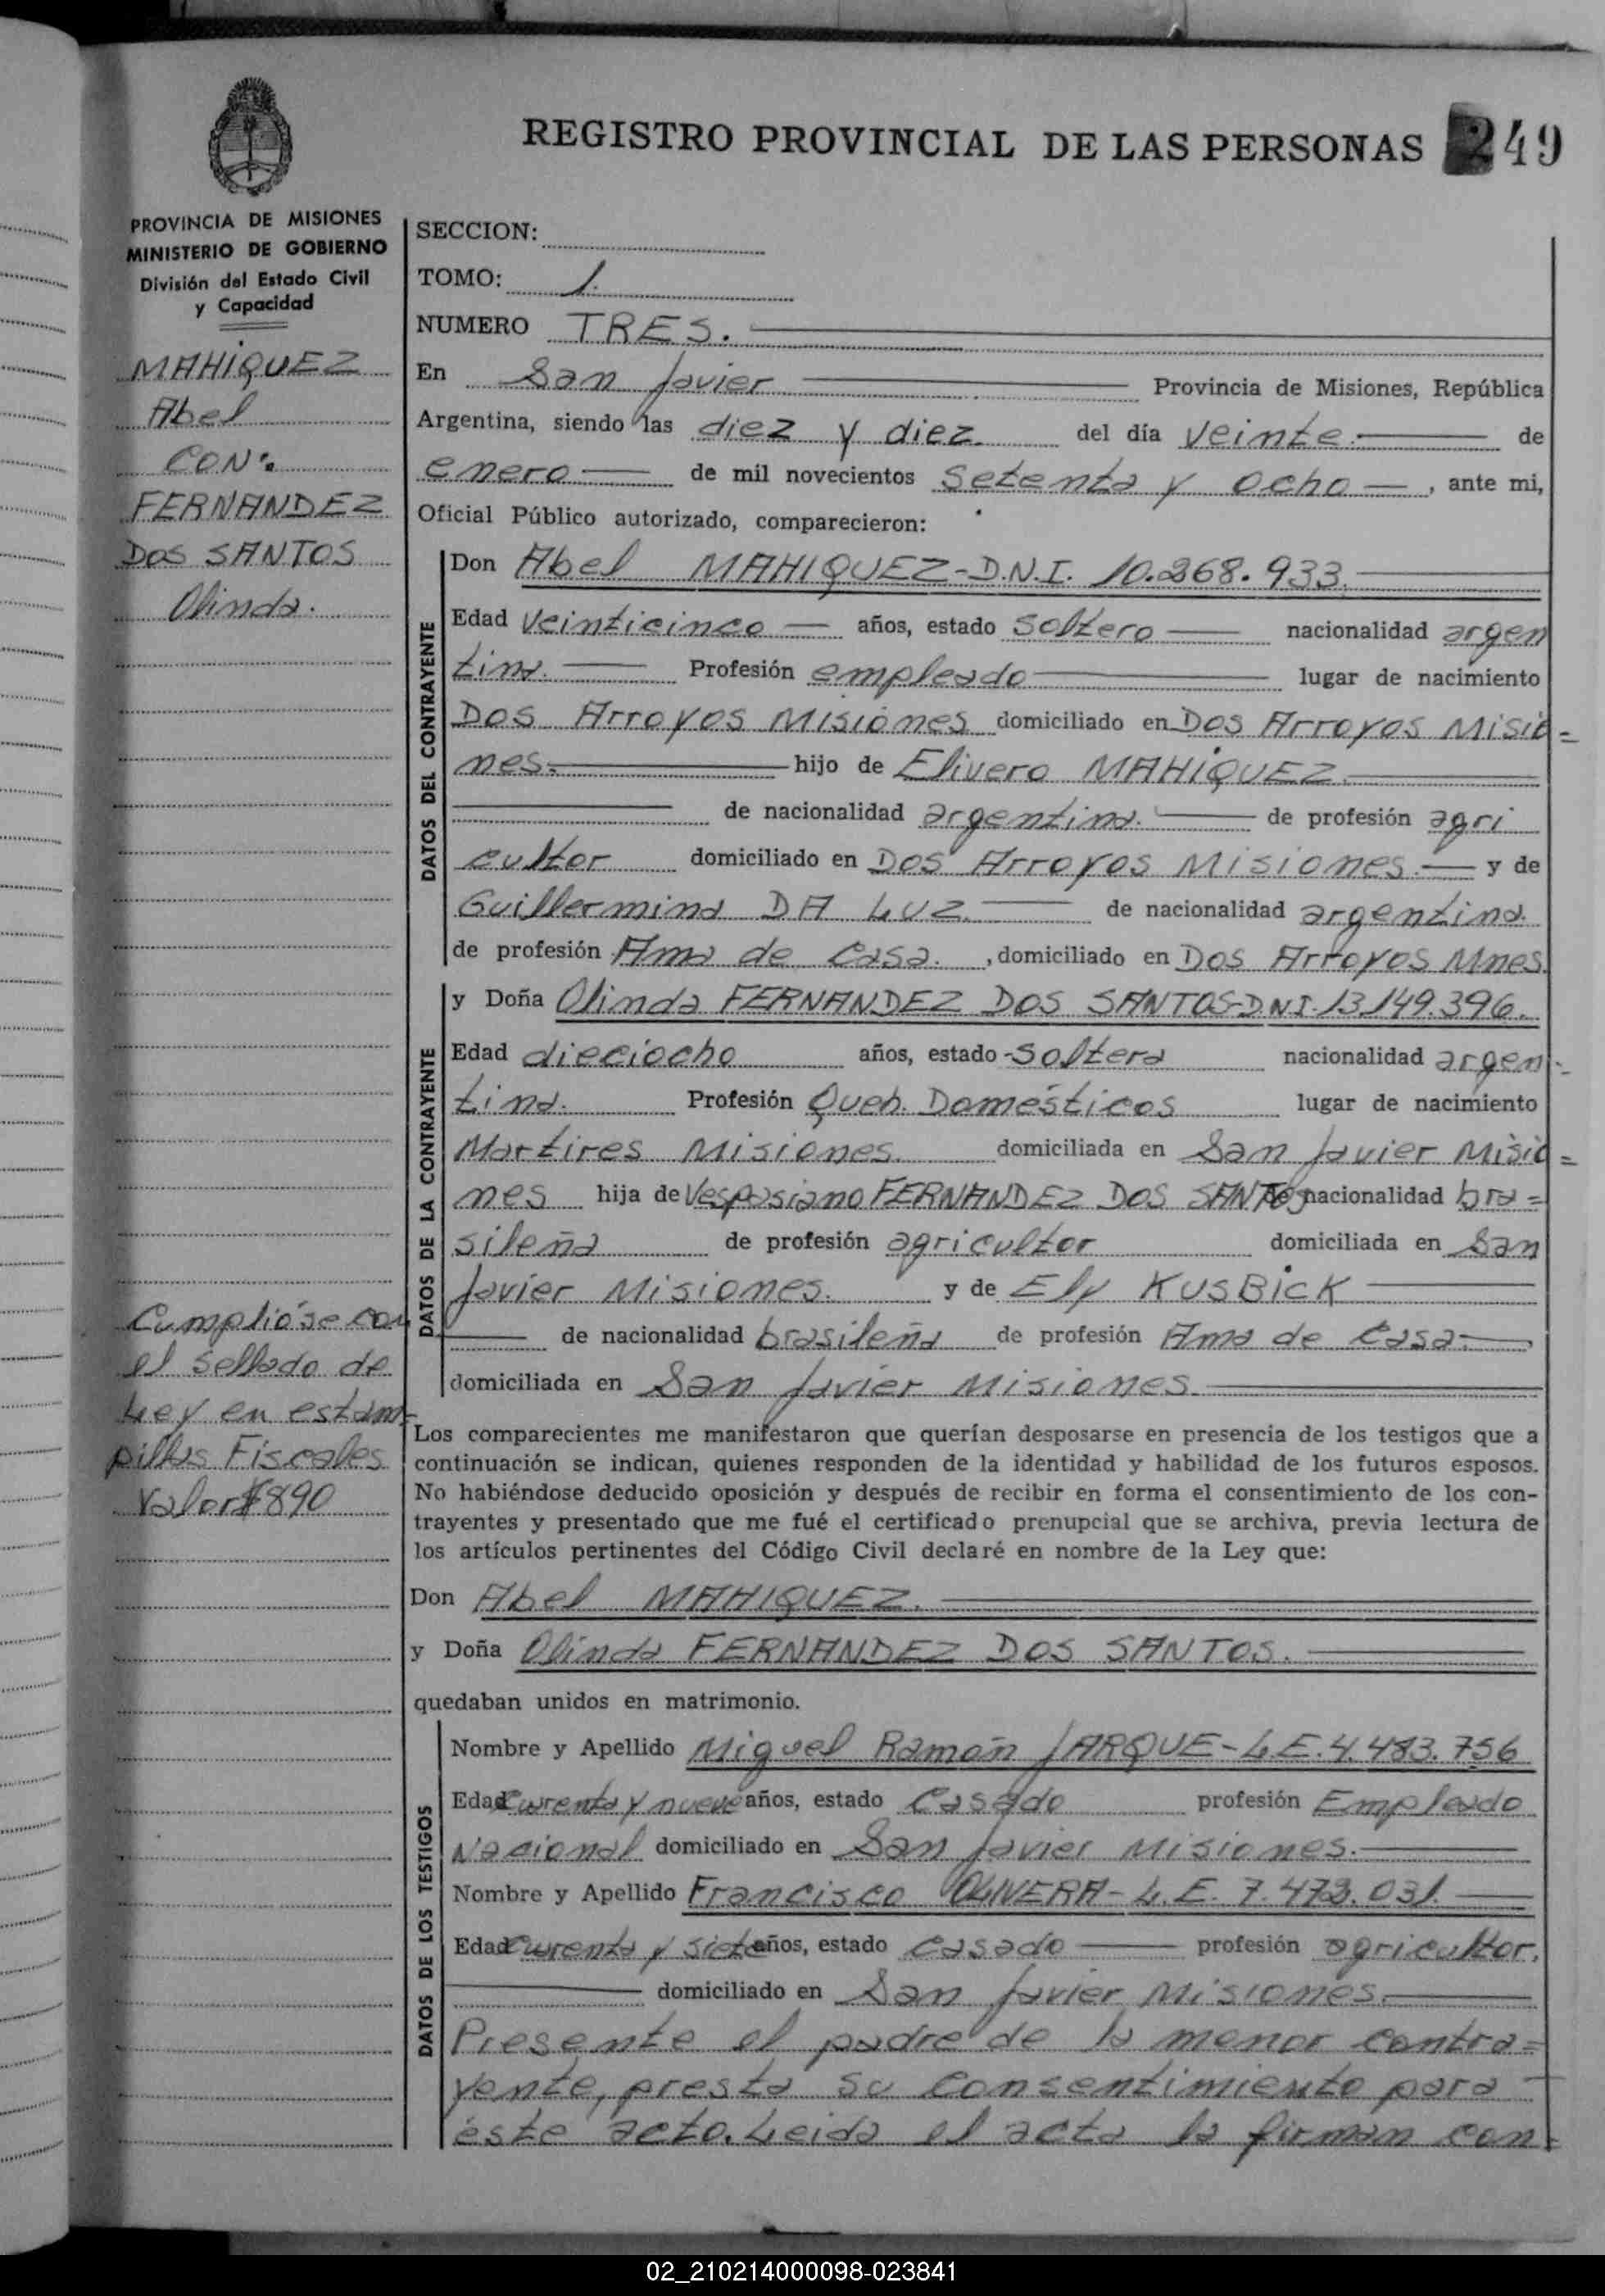 REGISTRO PROVINCIAL DE LAS PERSONAS 249
PROVINCIA DE MISIONES
MINISTERIO DE GOBIERNO
División del Estado Civil
y Capacidad
MAHIQUEZ
Abel
CON:
FERNANDEZ
DOS SANTOS
Olinda.
Cumplióse con
el sellado de
Ley en estam-
pillas Fiscales
Valor $890
SECCION:
TOMO: 1.
NUMERO TRES.
En San Javier Provincia de Misiones, República
Argentina, siendo las diez y diez del día veinte. de
enero de mil novecientos setenta y ocho, ante mi,
Oficial Público autorizado, comparecieron:
DATOS DEL CONTRAYENTE
Don Abel MAHIQUEZ-D.N.I. 10.268.933.
Edad veinticinco años, estado soltero nacionalidad argen
tina. Profesión empleado lugar de nacimiento
DOS Arroyos Misiones domiciliado en Dos Arroyos Misio=
nes. hijo de Elivero MAHIQUEZ.
de nacionalidad argentina. de profesión agri
cultor domiciliado en Dos Arroyos Misiones. y de
Guillermina DA LUZ. de nacionalidad argentina.
de profesión Ama de Casa. , domiciliado en Dos Arroyos Mnes.
DATOS DE LA CONTRAYENTE
y Doña Olinda FERNANDEZ DOS SANTOS-DNI.13.149.396.
Edad dieciocho años, estado soltera nacionalidad argen=
tina. Profesión Queh. Domésticos lugar de nacimiento
Martires Misiones. domiciliada en San Javier Misio=
nes hija de Vesposiano FERNANDEZ DOS SANTOS de nacionalidad bra=
sileña de profesión agricultor domiciliada en San
Javier Misiones. y de Ely KUSBICK
de nacionalidad brasileña de profesión Ama de Casa.
domiciliada en San Javier Misiones.
Los comparecientes me manifestaron que querían desposarse en presencia de los testigos que a
continuación se indican, quienes responden de la identidad y habilidad de los futuros esposos.
No habiéndose deducido oposición y después de recibir en forma el consentimiento de los con-
trayentes y presentado que me fué el certificado prenupcial que se archiva, previa lectura de
los artículos pertinentes del Código Civil declaré en nombre de la Ley que:
Don Abel MAHIQUEZ.
y Doña Olinda FERNANDEZ DOS SANTOS.
quedaban unidos en matrimonio.
DATOS DE LOS TESTIGOS
Nombre y Apellido Miguel Ramón JARQUE-L.E.4.483.756
Edad curenta y nueve años, estado Casado profesión Empleado
Nacional domiciliado en San Javier Misiones.
Nombre y Apellido Francisco OLIVERA-L.E. 7.472.031.
Edad curenta y siete años, estado casado profesión agricultor.
domiciliado en San Javier Misiones.
Presente el padre de la menor contra=
yente, presta su consentimiento para
éste acto. Leida el acta la firman con=
02_210214000098-023841